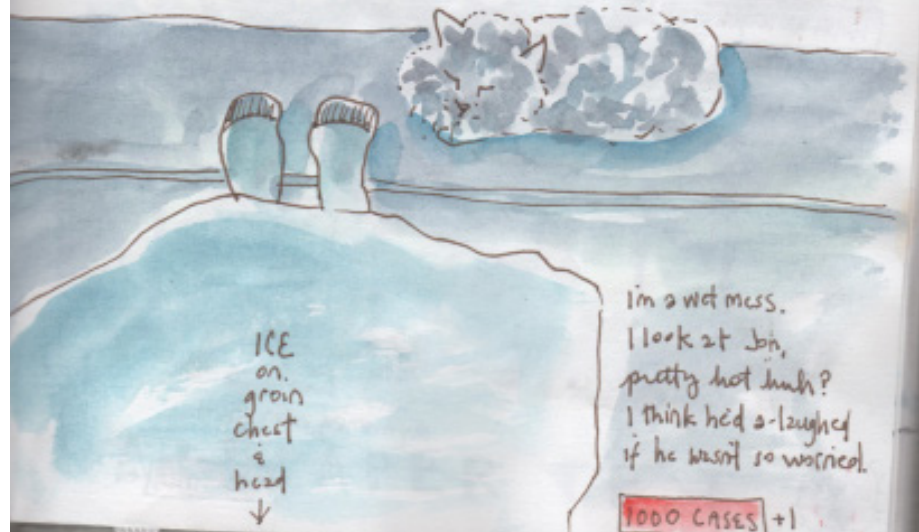 ICE
on.
groin
chest
&
head
I'm a wet mess.
I look at Jon,
pretty hot huh?
I think he'd a-laughed
if he wasn't so worried.
1000 CASES +1